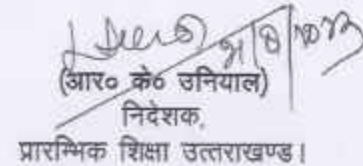 (आर० के० उनियाल)
निदेशक,
प्रारम्भिक शिक्षा उत्तराखण्ड।